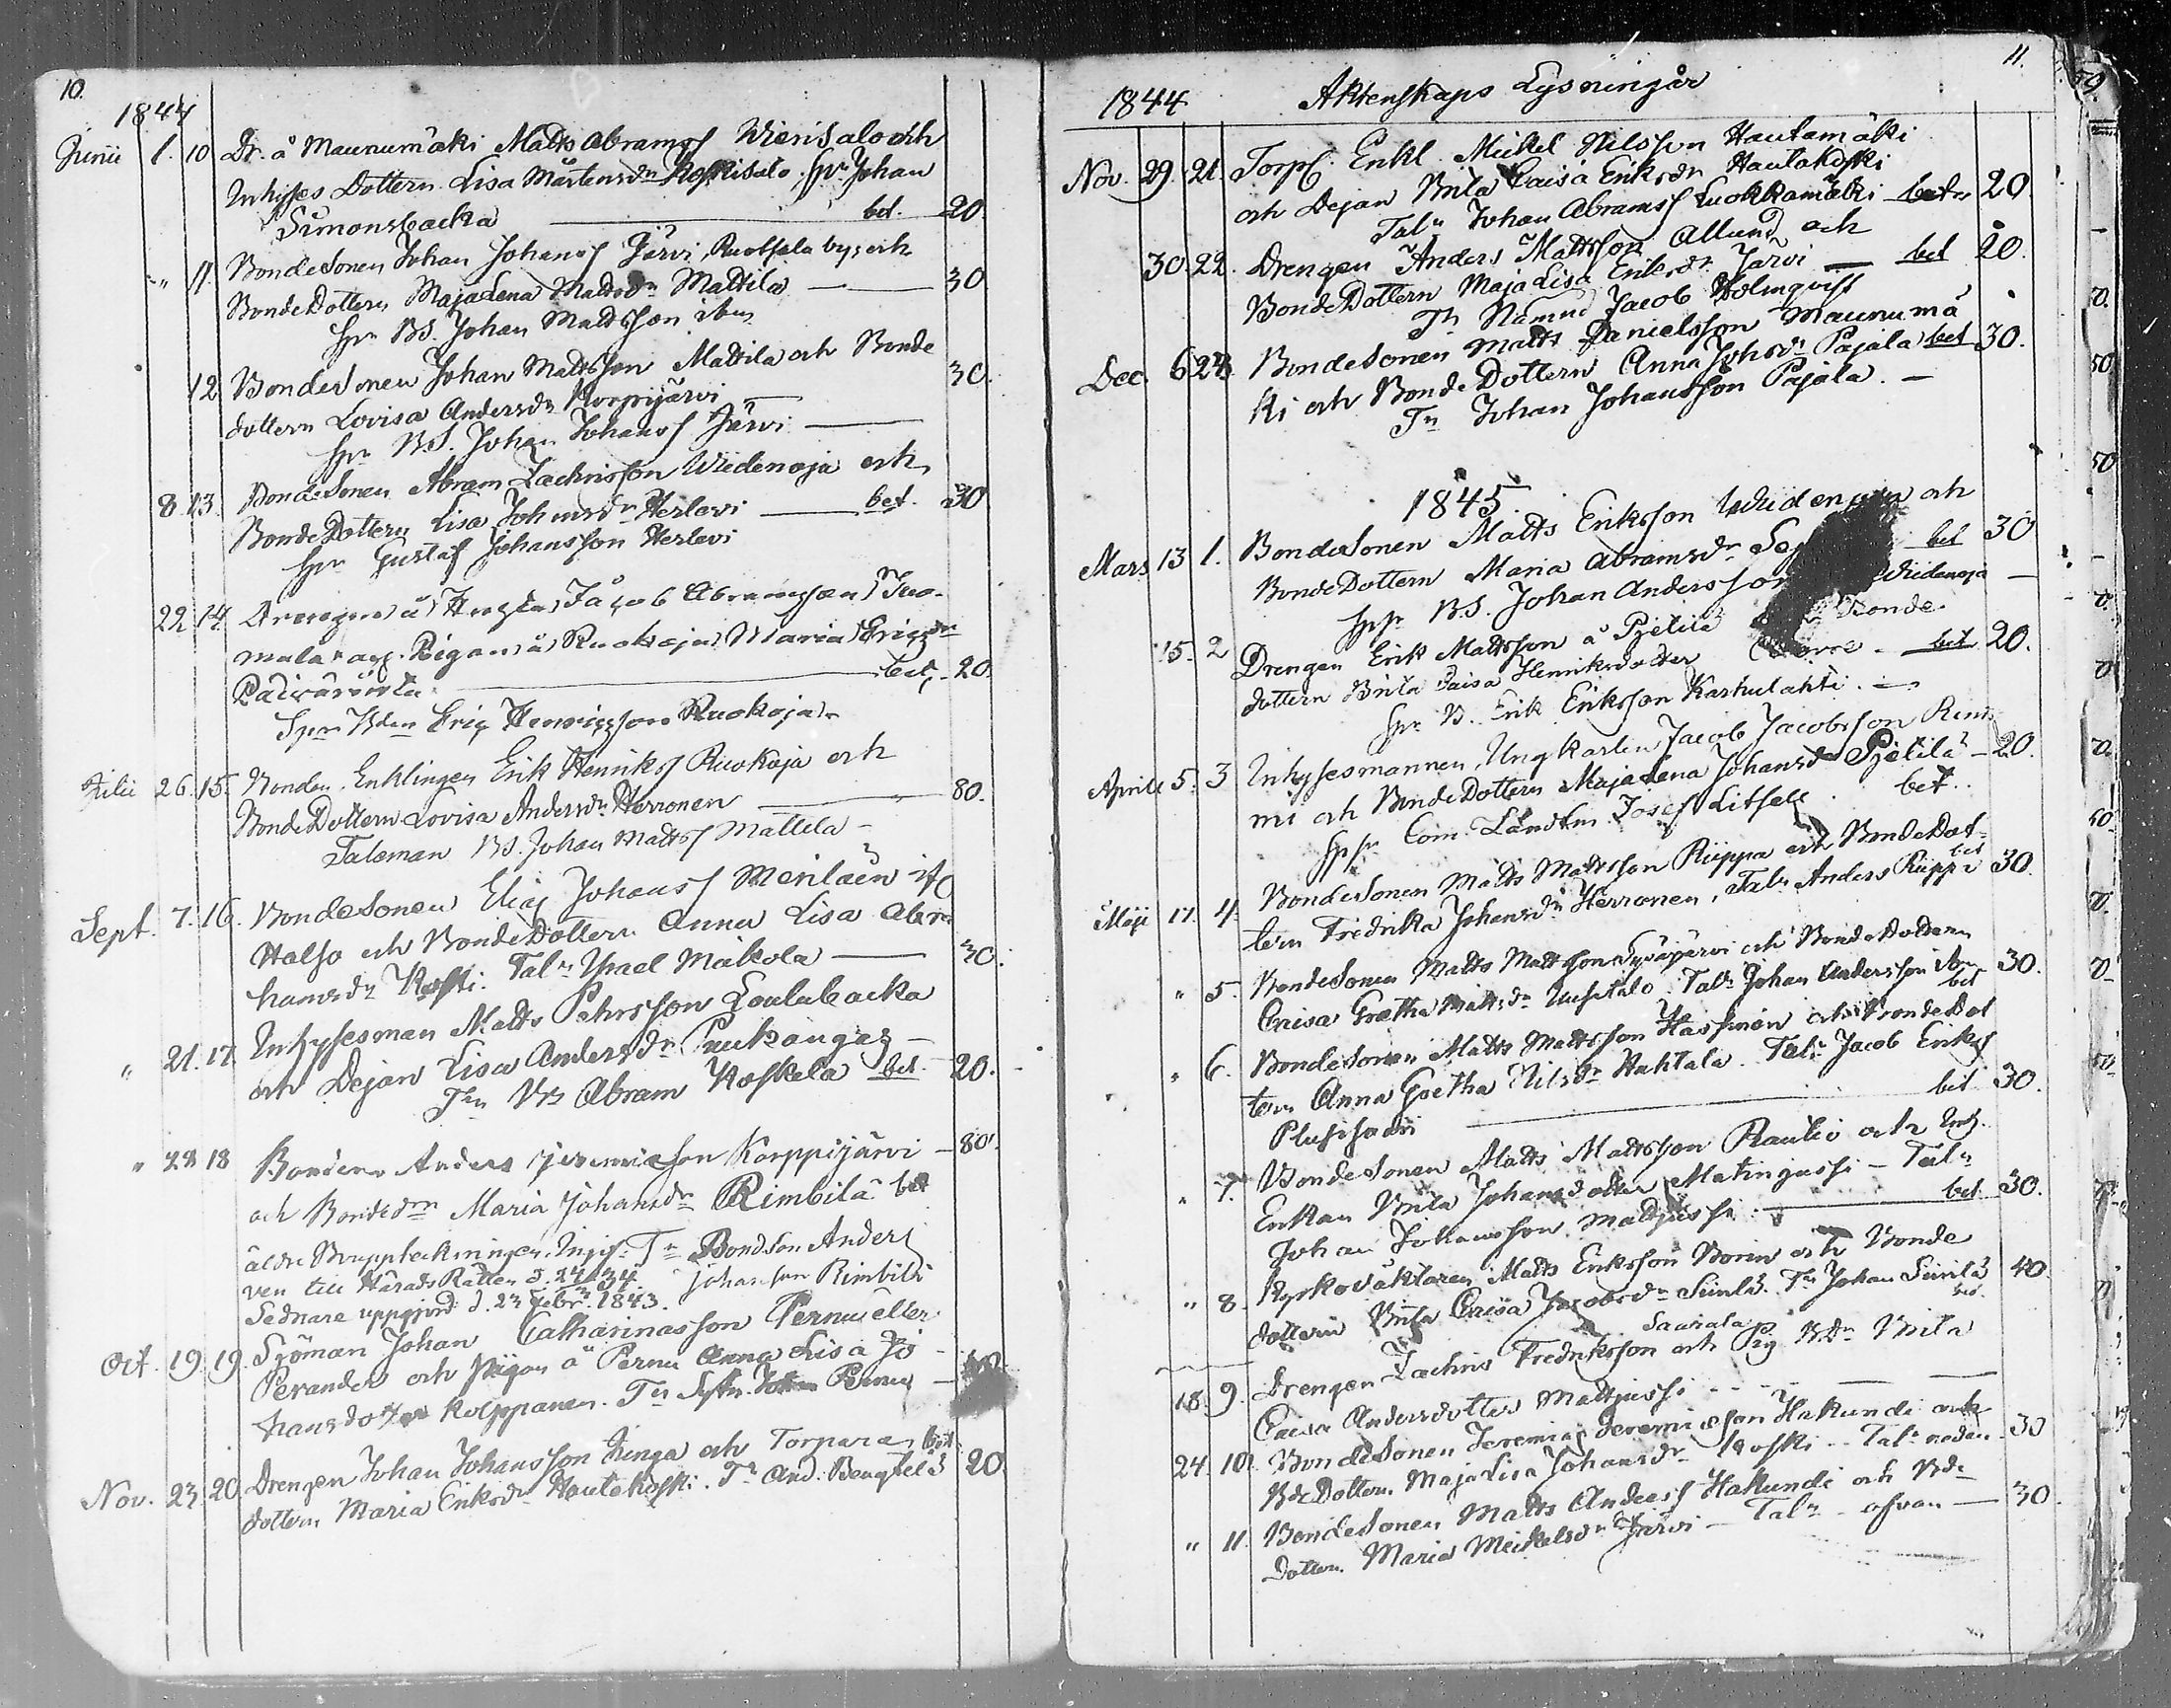 10.
1844
Junii 1. 10 Dr. å Maunumäki Matts Abramss Wierisalo och
Inhyses Dottern Lisa Mårtensdr Koskisalo. Spr Johan
Simonsbacka bet. 20
" 11. BondeSonen Johan Johanss Järvi, Ruotsala by, och
BondeDottern MajaLena Mattsdr Mattila 30
Spr BS. Johan Mattsson ibm
12 BondeSonen Johan Mattsson Mattila och Bonde 30.
dottern Lovisa Andersdr Korpijärvi
Spr BS. Johan Johanss Järvi
8 13. BondeSonen Abram Zachrisson Wiidenoja och
BondeDottern Lisa Johansdr Herlevi bet. 30
Spr Gustaf Johansson Herlevi
22 14. Drengen å Jacob Abramsson Tuo-
mala och Pigan å Ruokoja Maria Ericsdr
bet. 20
Spr Bden Eric Henricsson Ruokoja
Julii 26. 15. Bonden, Enklingen Erik Henrikss Ruokoja och
BondeDottern Lovisa Andersdr Herronen 80.
Talsman BS. Johan Mattss Mattila
Sept. 7. 16. BondeSonen Elias Johanss Meriläin
Halso och BondeDottern Anna Lisa Abra
hamsdr Koski. Taln Israel Mäkola 30.
" 21. 17 Inhysesman Matts Pehrsson Loulubacka
och Dejan Lisa Andersdr Paukangas
Tn Bd Abram Koskela bet. 20.
" 28 18 Bonden Anders Jeremiasson Korppijärvi 80.
och Bondedrn Maria Johansdr Rimbilä bet
äldre Bouppteckningen Ingif- Tn BondSon Anders
ven till Härads Rätten d. Johansson Rimbilä
Sednare uppgjord d. 23 Febr. 1843.
Oct. 19. 19. Sjöman Johan Catharinasson Pernu eller
Perander och Pigan å Pernu Anna Lisa Jo
hansdotter Kolppanen. Tn Johan Pernu
Nov. 23. 20. Drengen Johan Johansson Linga och Torpare bet
dottern Maria Eriksdr Hautakoski. Tn And. Bengtelä 20.
11.
1844 Aktenskaps Lysningar
Nov. 29. 21. Torp. Enkl. Mickel Nilsson Hautamäki
och Dejan Brita Caisa Eriksdr Hautakoski
Taln Johan Abramss Luokkamäki bet 20
30. 22. Drengen Anders Mattsson Allund och
BondeDottern MajaLisa Eriksdr Järvi bet 20.
Tn Nämnd Jacob Holmqvist
Dec. 6 23. BondeSonen Matts Danielsson Maunumä
ki och BondeDottern Anna Johsdr Pajala bet 30.
Tn Johan Johansson Pajala.
1845.
Mars 13 1. BondeSonen Matts Eriksson Wiidenoja och
BondeDottern Maria Abramsdr bet 30
Spr BS. Johan Andersson Wiidenoja
15. 2 Drengen Erik Mattsson å Pjelilä Bonde
dottern Brita Caisa Henriksdotter bet 20.
Spr B. Erik Eriksson Karhulahti.
Aprill 5. 3 Inhysesmannen, Ungkarlen Jacob Jacobsson
mi och BondeDottern MajaLena Johansdr Pjelilä 20.
Spr Com. Landtm. Josef Litsell bet.
Maji 17. 4. BondeSonen Matts Mattsson Riippa och BondeDot-
tern Fredrika Johansdr Herronen, Taln Anders Riippa bet 30.
" 5. BondeSonen Matts Mattsson Syväjärvi och BondeDottern
Caisa Gretha Mattsdr Uusitalo. Taln Johan Andersson ibm bet 30.
" 6. BondeSonen Matts Mattsson Hassinen och BondeDot
tern Anna Gretha Nilsdr Huhtala. Taln Jacob Erikss
bet 30.
" 7. BondeSonen Matts Mattsson Rautio och Inh.
Enkan Brita Johansdotter Matinjussi - Taln
Johan Johansson Mattjussi bet 30.
" 8. Kyrkoväktaren Matts Eriksson Borin och Bonde
dottern Brita Caisa Jacobsdr Siirilä. Tn Johan Siirilä bet 40.
Saarala
18. 9. Drengen Zachris Fredriksson och Pig. Bdn Brita
Caisa Andersdotter Mattjussi
24. 10. BondeSonen Jeremias Jeremiasson Hakunti och
BdeDottern MajaLisa Johansdr Koski. Taln nedan 30
" 11. BondeSonen Matts Anderss Hakunti och Bde
Dottern Maria Mickelsdr Järvi - Taln ofvan 30.